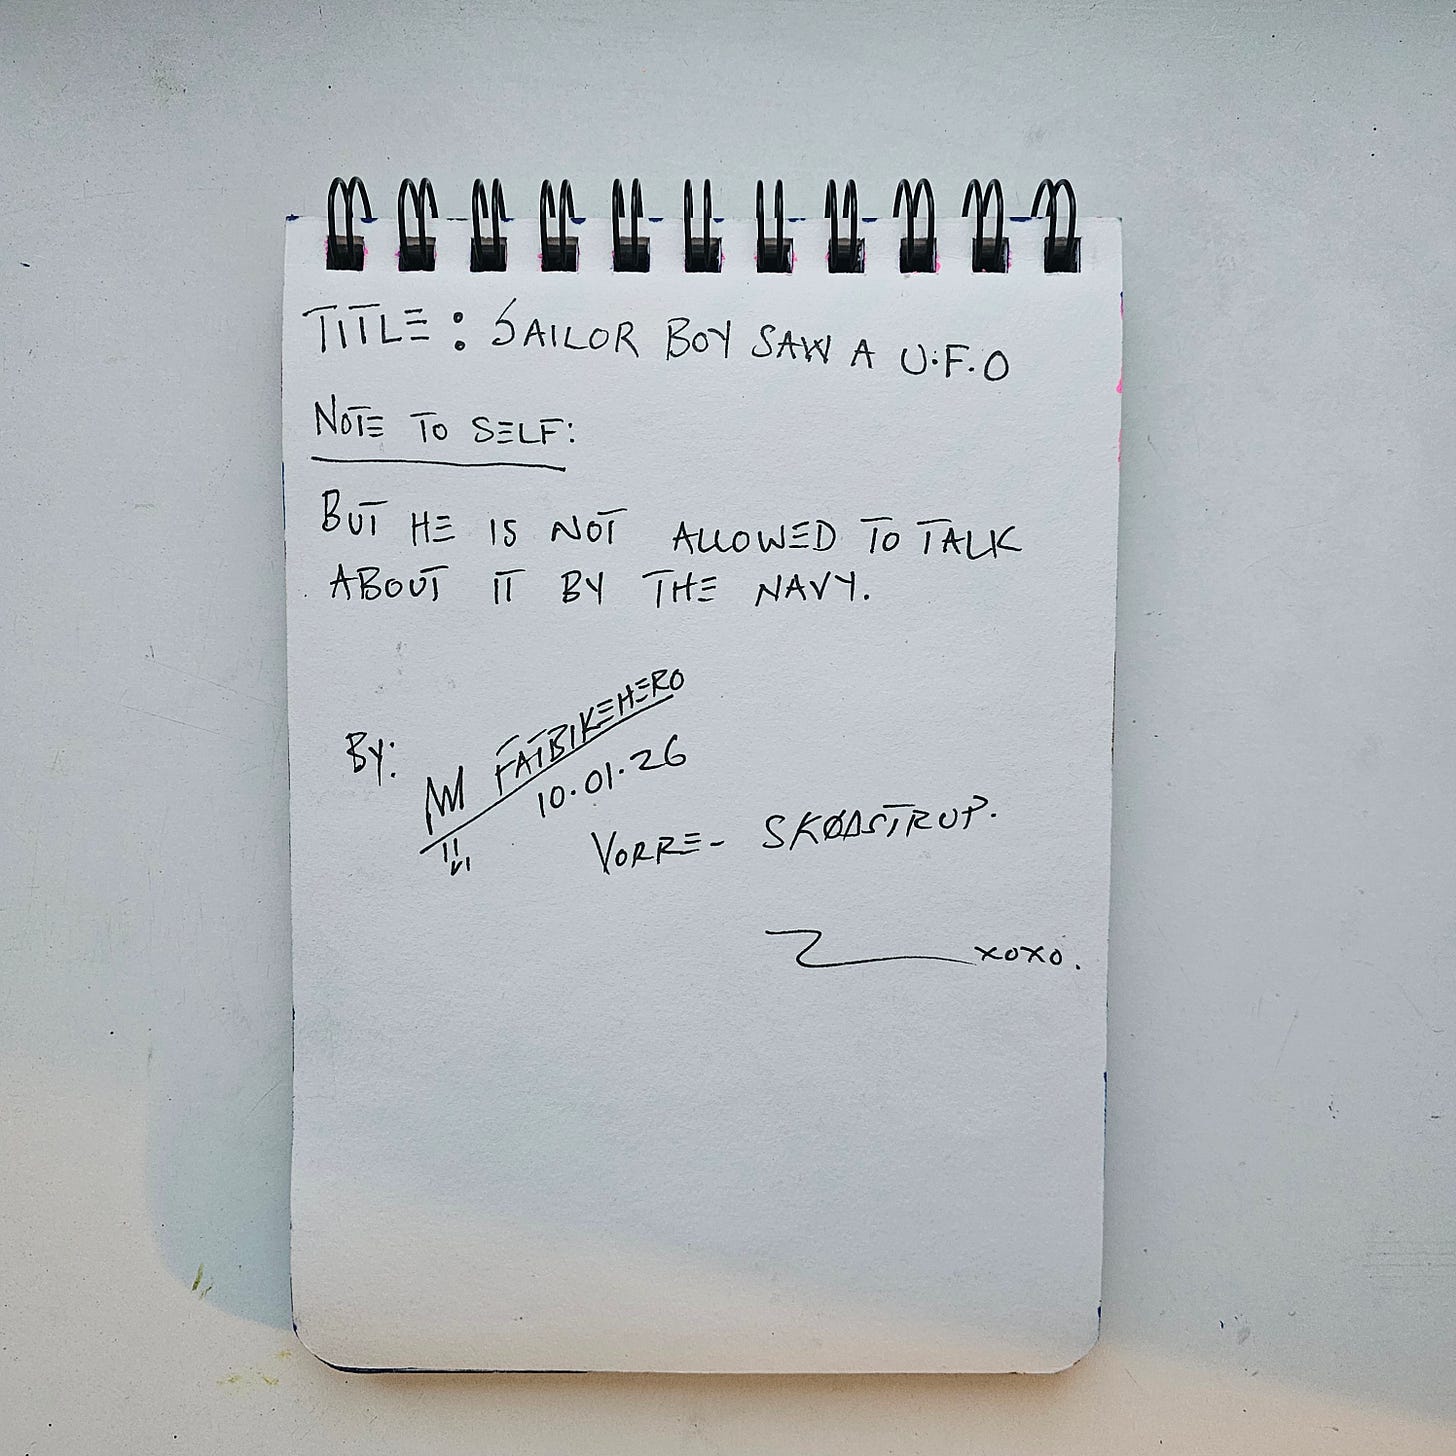 TITLE: SAILOR BOY SAW A U.F.O
NOTE TO SELF:
BUT HE IS NOT ALLOWED TO TALK
ABOUT IT BY THE NAVY.
BY: FATBIKEHERO
10.01.26
VORRE- SKØDSTRUP.
xoxo.